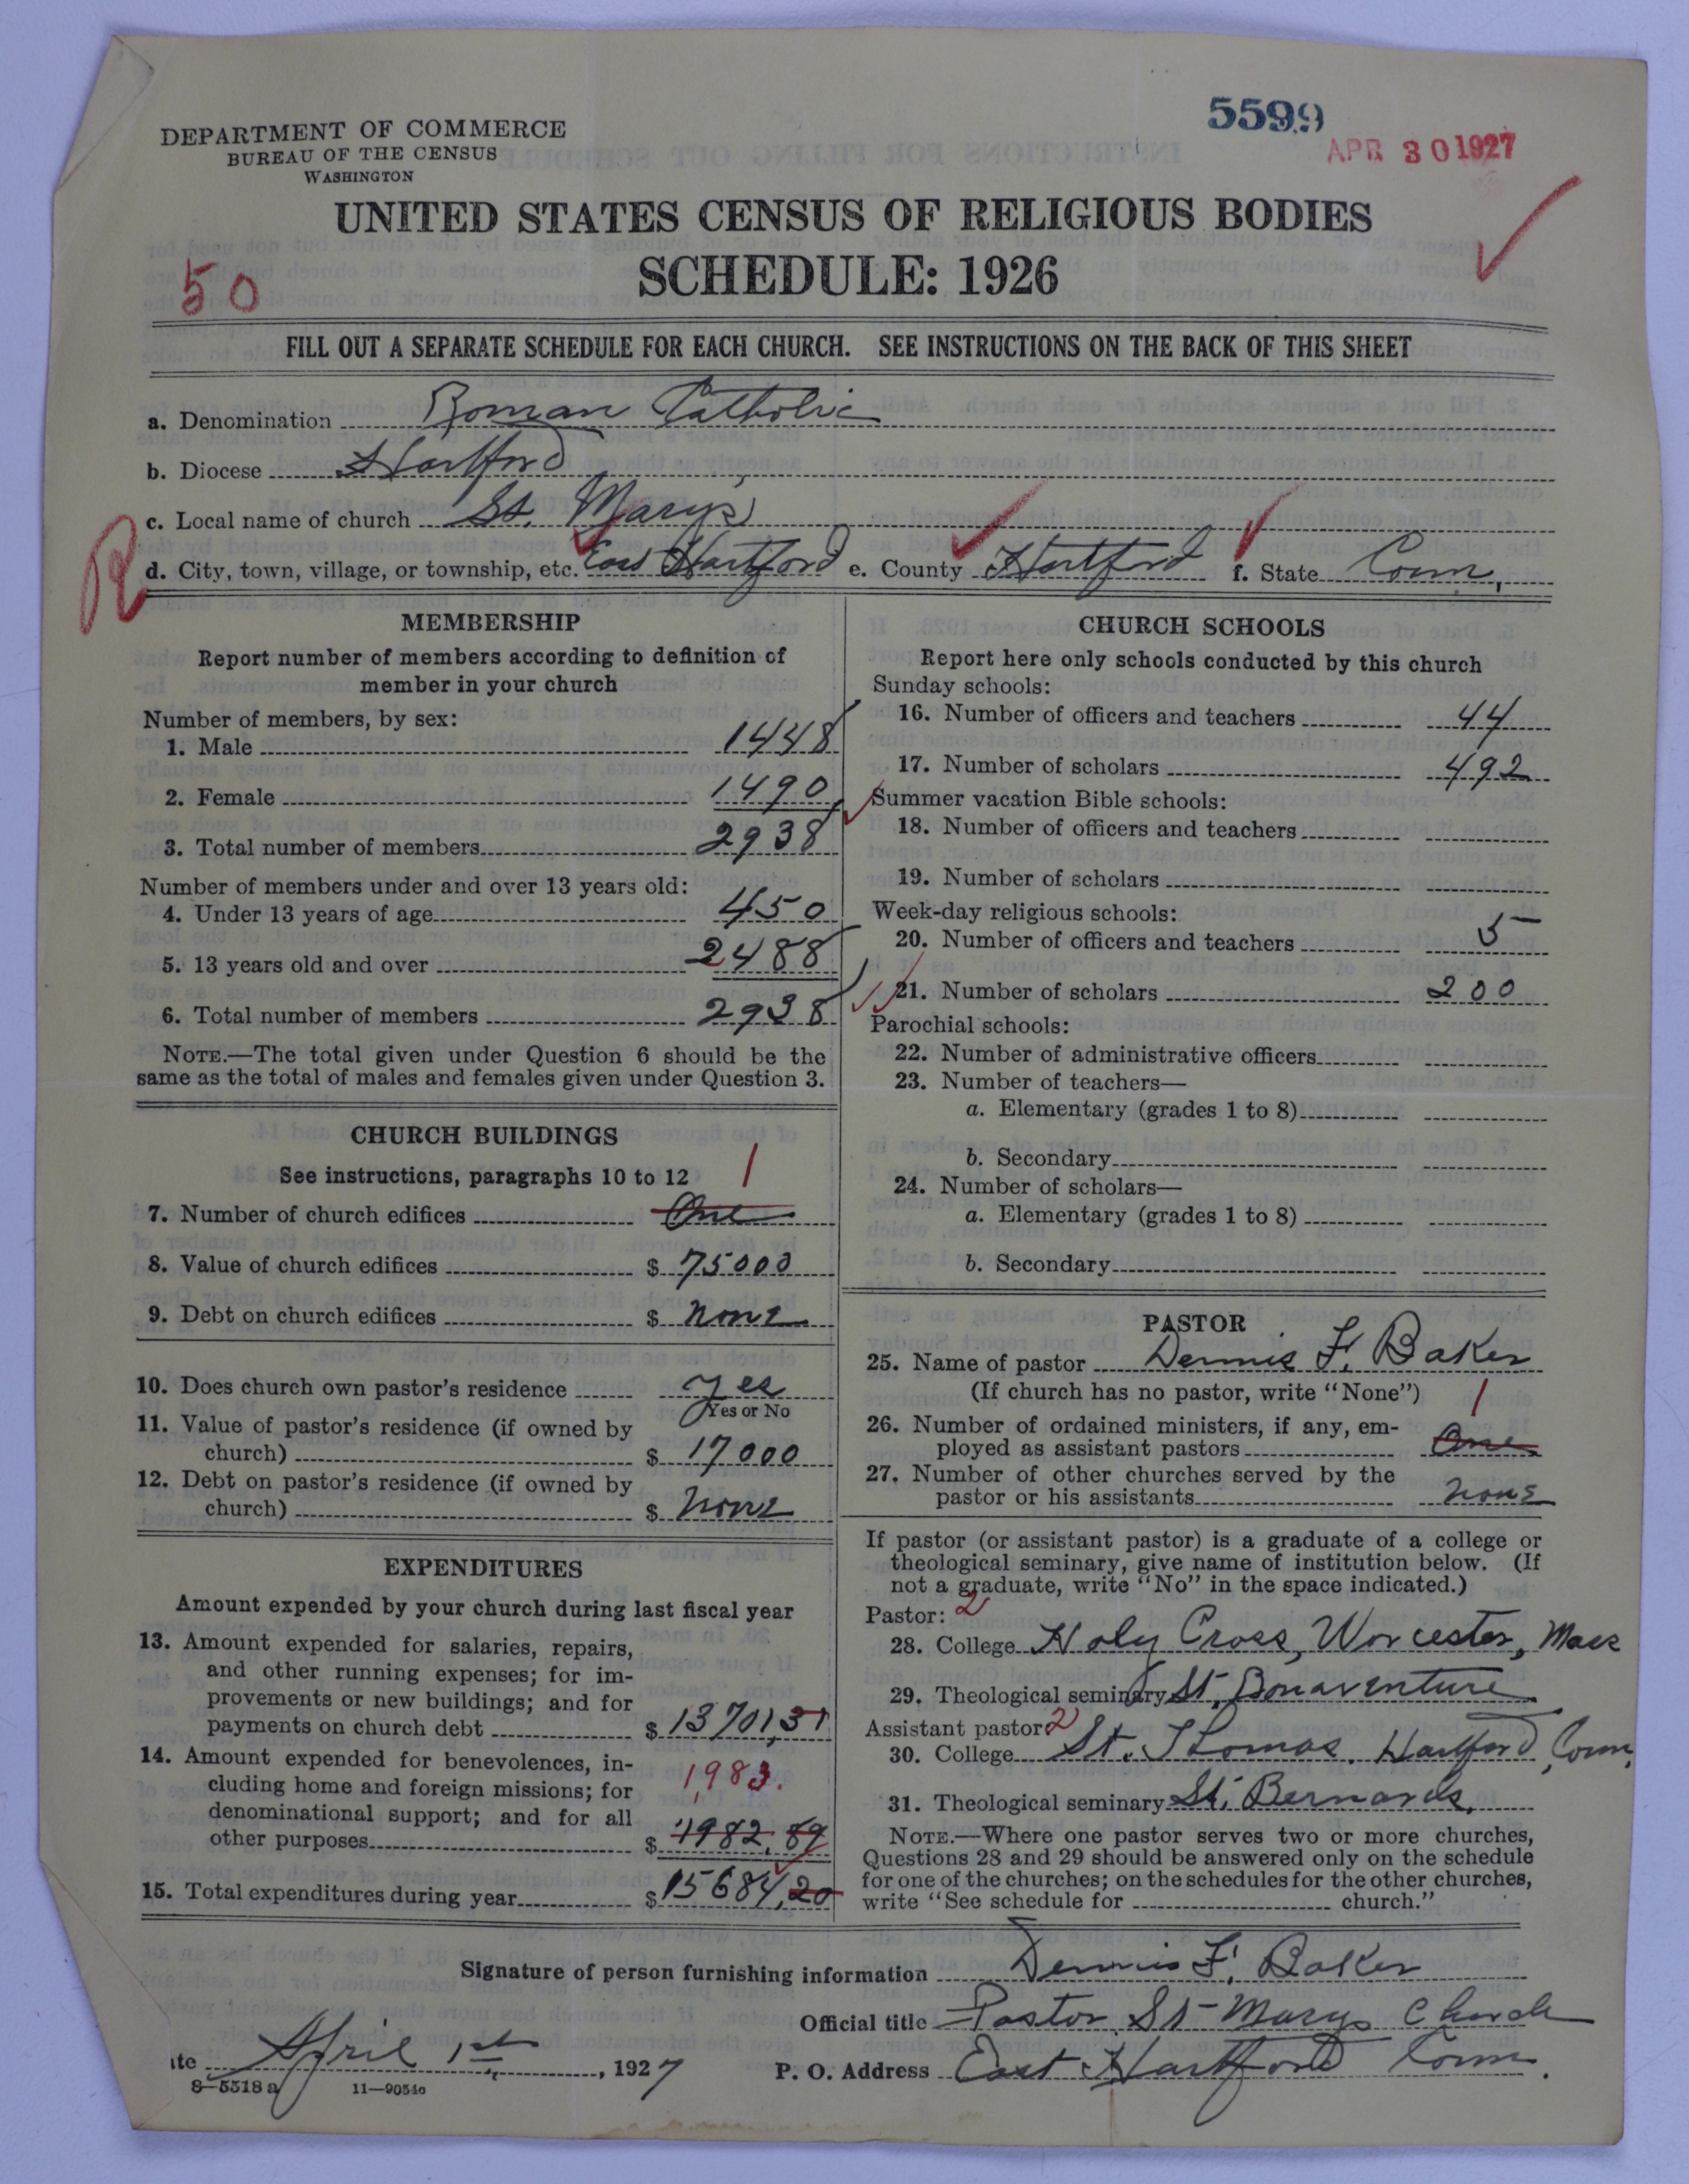 5599
APR 30 1927
DEPARTMENT OF COMMERCE
BUREAU OF THE CENSUS
WASHINGTON
UNITED STATES CENSUS OF RELIGIOUS BODIES
SCHEDULE: 1926
50
FILL OUT A SEPARATE SCHEDULE FOR EACH CHURCH. SEE INSTRUCTIONS ON THE BACK OF THIS SHEET
a. Denomination Roman Catholic
b. Diocese Hartford
c. Local name of church St. Mary's
R
d. City, town, village, or township, etc. East Hartford e. County Hartford f. State Conn.
MEMBERSHIP
Report number of members according to definition of
member in your church
Number of members, by sex:
1. Male 1448
2. Female 1490
3. Total number of members 2938
Number of members under and over 13 years old:
4. Under 13 years of age 450
5. 13 years old and over 2488
6. Total number of members 2938
NOTE.—The total given under Question 6 should be the
same as the total of males and females given under Question 3.
CHURCH BUILDINGS
See instructions, paragraphs 10 to 12
1
7. Number of church edifices One
8. Value of church edifices $ 75000
9. Debt on church edifices $ none
10. Does church own pastor's residence yes
Yes or No
11. Value of pastor's residence (if owned by
church) $ 17000
12. Debt on pastor's residence (if owned by
church) $ none
EXPENDITURES
Amount expended by your church during last fiscal year
13. Amount expended for salaries, repairs,
and other running expenses; for im-
provements or new buildings; and for
payments on church debt $ 13701,31
14. Amount expended for benevolences, in-
cluding home and foreign missions; for
1983.
denominational support; and for all
other purposes $ 1982.89
15. Total expenditures during year $ 15684,20
CHURCH SCHOOLS
Report here only schools conducted by this church
Sunday schools:
16. Number of officers and teachers 44
17. Number of scholars 492
Summer vacation Bible schools:
18. Number of officers and teachers
19. Number of scholars
Week-day religious schools:
20. Number of officers and teachers 5
21. Number of scholars 200
Parochial schools:
22. Number of administrative officers
23. Number of teachers—
a. Elementary (grades 1 to 8)
b. Secondary
24. Number of scholars—
a. Elementary (grades 1 to 8)
b. Secondary
PASTOR
25. Name of pastor Dennis F. Baker
(If church has no pastor, write "None")
1
26. Number of ordained ministers, if any, em-
ployed as assistant pastors One
27. Number of other churches served by the
pastor or his assistants none
If pastor (or assistant pastor) is a graduate of a college or
theological seminary, give name of institution below. (If
not a graduate, write "No" in the space indicated.)
Pastor: 2
28. College Holy Cross, Worcester, Mass
29. Theological seminary St. Bonaventure
Assistant pastor: 2
30. College St. Thomas, Hartford, Conn.
31. Theological seminary St. Bernards.
NOTE.—Where one pastor serves two or more churches,
Questions 28 and 29 should be answered only on the schedule
for one of the churches; on the schedules for the other churches,
write "See schedule for church."
Signature of person furnishing information Dennis F. Baker
Official title Pastor St Marys Church
ate April 1st, 1927 P. O. Address East Hartford Conn.
8—5518 a 11—9054o